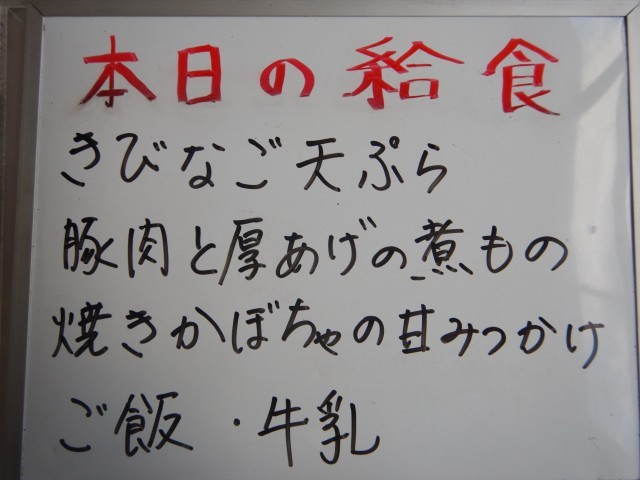 本日の給食
きびなご天ぷら
豚肉と厚あげの煮もの
焼きかぼちゃの甘みつかけ
ご飯・牛乳